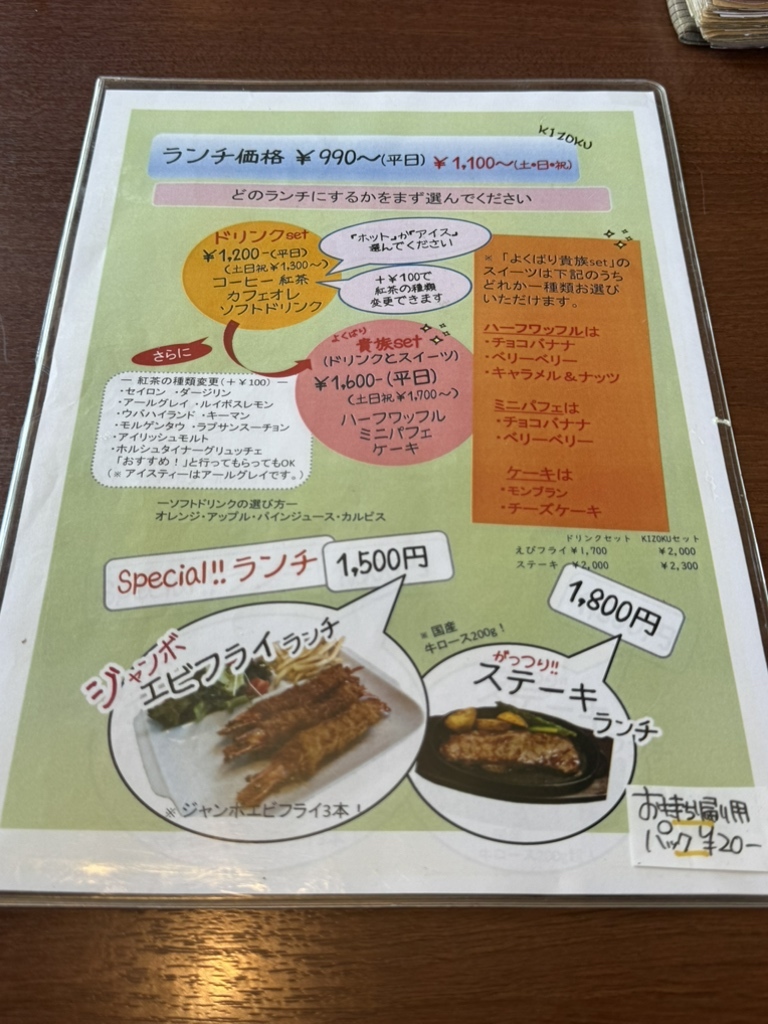 KIZOKU
ランチ価格 ￥990～(平日) ￥1,100～(土•日•祝)
どのランチにするかをまず選んでください
ドリンクset
￥1,200-(平日)
(土日祝￥1,300～)
コーヒー 紅茶
カフェオレ
ソフトドリンク
「ホット」か「アイス」
選んでください
＋￥100で
紅茶の種類
変更できます
さらに
よくばり
貴族set
(ドリンクとスイーツ)
￥1,600-(平日)
(土日祝￥1,700～)
ハーフワッフル
ミニパフェ
ケーキ
※「よくばり貴族set」の
スイーツは下記のうち
どれか一種類お選び
いただけます。
ハーフワッフルは
・チョコバナナ
・ベリーベリー
・キャラメル＆ナッツ
ミニパフェは
・チョコバナナ
・ベリーベリー
ケーキは
・モンブラン
・チーズケーキ
― 紅茶の種類変更(＋￥100) ―
・セイロン ・ダージリン
・アールグレイ ・ルイボスレモン
・ウバハイランド ・キーマン
・モルゲンタウ ・ラプサンスーチョン
・アイリッシュモルト
・ホルシュタイナーグリュッチェ
「おすすめ！」と行ってもらってもOK
(※ アイスティーはアールグレイです。)
―ソフトドリンクの選び方―
オレンジ・アップル・パインジュース・カルピス
ドリンクセット KIZOKUセット
えびフライ ￥1,700 ￥2,000
ステーキ ￥2,000 ￥2,300
Special!! ランチ 1,500円
ジャンボ
エビフライランチ
※ ジャンボエビフライ3本！
1,800円
※ 国産
牛ロース200g！
がっつり!!
ステーキ
ランチ
お持ち帰り用
パック ¥20-